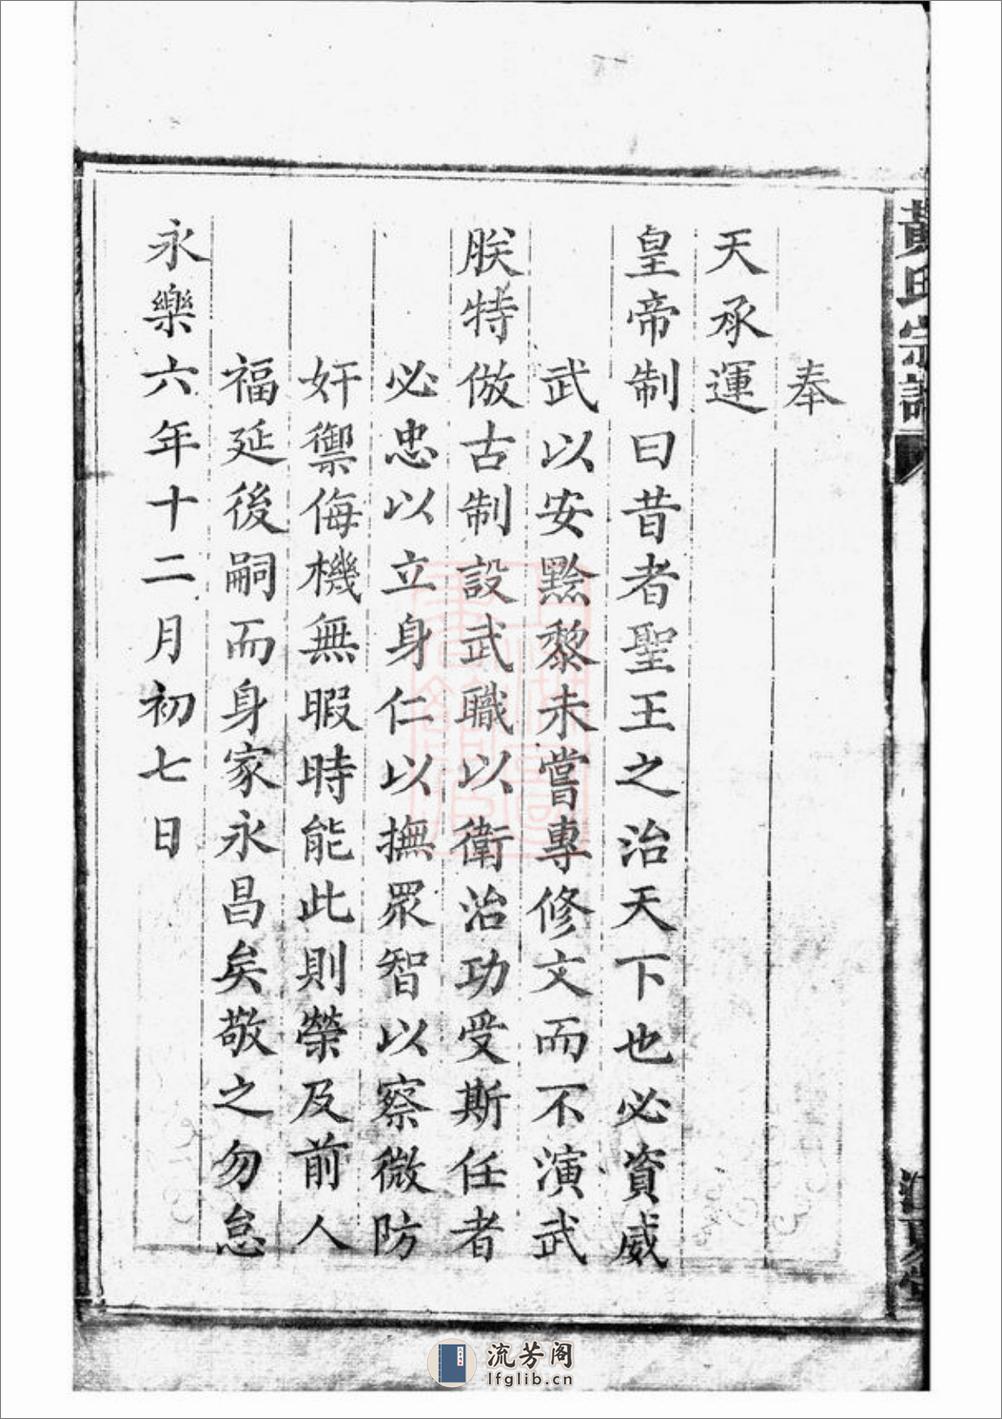 黃氏宗譜
江夏堂
奉
天承運
皇帝制曰昔者聖王之治天下也必資威
武以安黔黎未嘗專修文而不演武
朕特倣古制設武職以衛治功受斯任者
必忠以立身仁以撫眾智以察微防
奸禦侮機無暇時能此則榮及前人
福延後嗣而身家永昌矣敬之勿怠
永樂六年十二月初七日
流芳阁
lfglib.cn